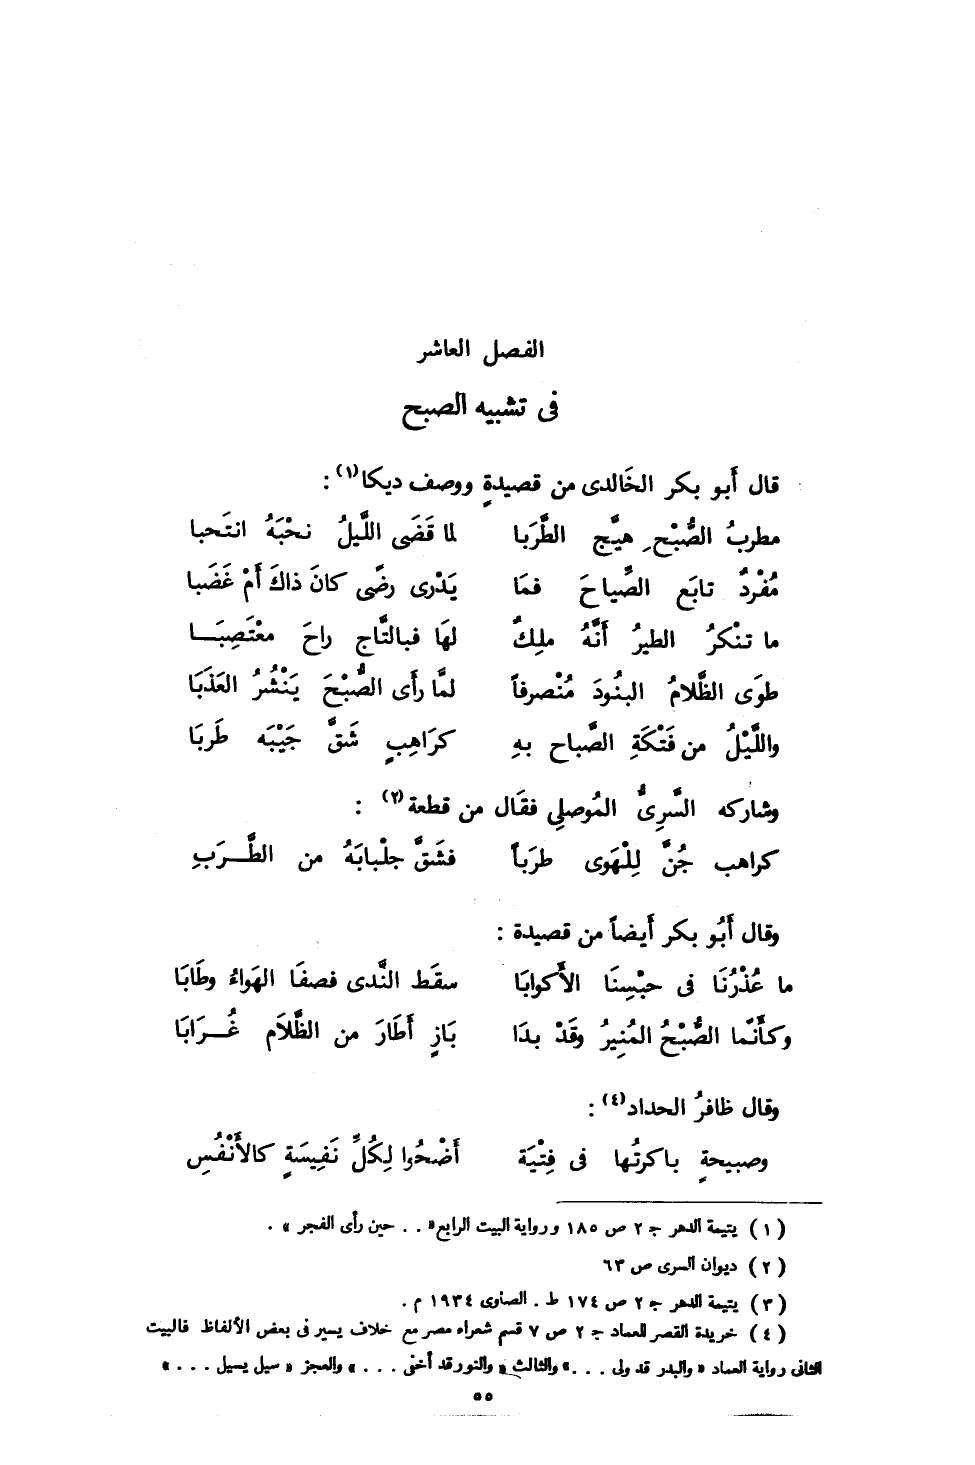 الفصل العاشر
فى تشبيه الصبح
قال أَبو بكر الخَالدى من قصيدةٍ ووصف ديكا(١) :
مطربُ الصُّبْحِ هيَّج الطَّرَبا لما قَضَى اللَّيلُ نحْبَهُ انتَحبا
مُفْردٌ تابَع الصِّياحَ فمَا يَدْرى رضًى كانَ ذاكَ أَمْ غَضَبا
ما تنْكرُ الطيرُ أَنَّهُ ملِكٌ لهَا فبالتَّاج راحَ معْتَصِبَا
طوَى الظَّلامُ البنُودَ مُنْصرفاً لمَّا رأَى الصُّبْحَ يَنْشُرُ العَذَبَا
واللَّيْلُ من فَتْكَةِ الصَّباح بهِ كرَاهبٍ شَقَّ جَيْبَه طَربَا
وشاركه السَّرِىُّ المُوصلِى فقَال من قطعة(٢) :
كراهب جُنَّ لِلْهَوى طرَباً فشَقَّ جلْبابَهُ من الطَّرَبِ
وقال أَبُو بكر أَيضاً من قصيدة :
ما عُذْرُنَا فى حبْسِنَا الأَكوابَا سقَط النَّدى فصفَا الهَواءُ وطَابَا
وكأَنَّما الصُّبْحُ المُنِيرُ وقَدْ بدَا بَازٍ أَطَارَ من الظَّلَام غُرَابَا
وقال ظافرُ الحداد(٤) :
وصبيحةٍ باكرتُها فى فِتْيَة أَضْحُوا لِكُلِّ نَفِيسَةٍ كالأَنْفُسِ
(١) يتيمة الدهر جـ ٢ ص ١٨٥ ورواية البيت الرابع« . . حين رأى الفجر » .
(٢) ديوان السرى ص ٦٣
(٣) يتيمة الدهر جـ ٢ ص ١٧٤ ط . الصاوى ١٩٣٤ م .
(٤) خريدة القصر للعماد جـ ٢ ص ٧ قسم شعراء مصر مع خلاف يسير فى بعض الألفاظ فالبيت
الثانى رواية العماد « والبدر قد ولى . . .» والثالث « والنور قد أخنى . . . » والعجز « سيل يسيل . . . »
٥٥